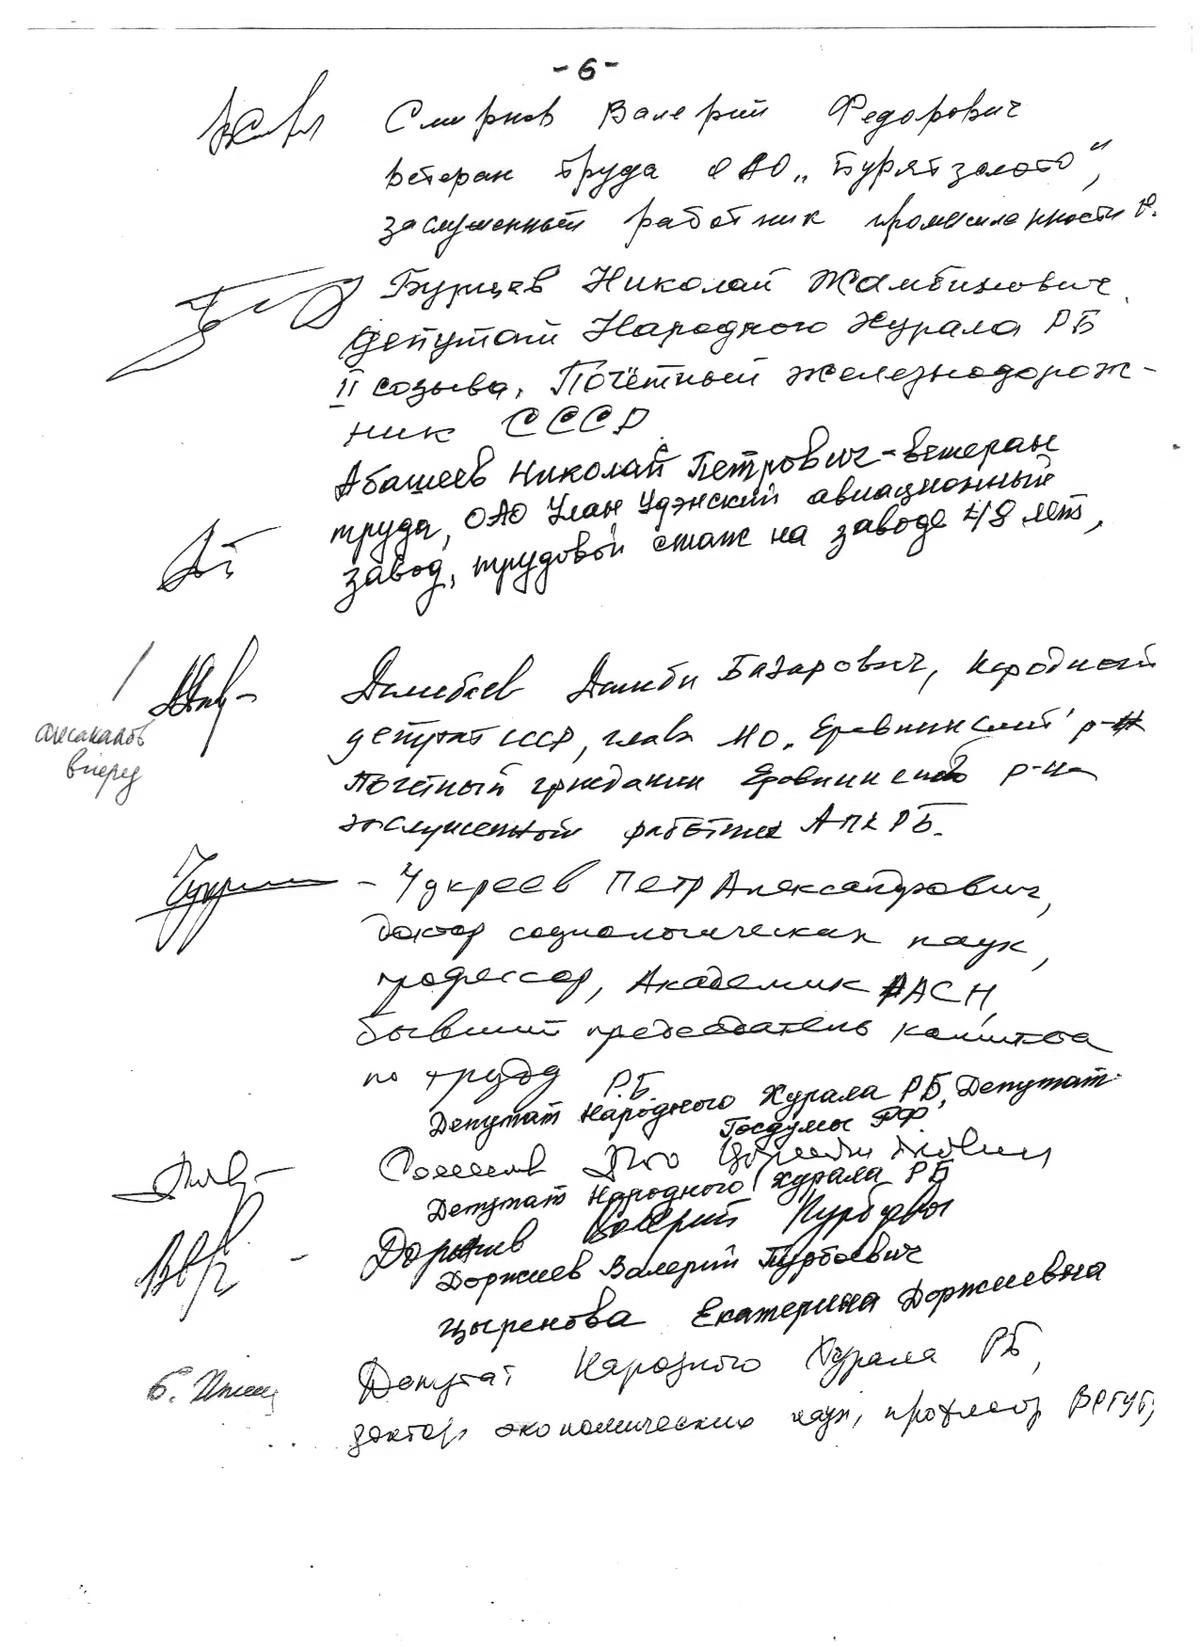 - 6 -
Смирнов Валерий Федорович
ветеран труда ОАО „Бурятзолото",
заслуженный работник промышленности Р.
Бурцев Николай Жамбинович
депутат Народного Хурала РБ
II созыва. Почётный железнодорож-
ник СССР
Абашеев Николай Петрович - ветеран
труда, ОАО Улан Удэнский авиационный
завод, трудовой стаж на заводе 48 лет,
Дамбаев Дамби Базарович, народный
депутат СССР, глава МО. Еравнинский р-н
аксакалов
вперед
почетный гражданин Еравнинского р-на
заслуженный работник АПК РБ.
- Чукреев Петр Александрович,
доктор социологических наук,
профессор, Академик АСН,
бывший председатель комитета
по труду РБ
Депутат Народного Хурала РБ, Депутат
Госдумы РФ
Депутат Народного Хурала РБ
Доржиев Валерий
Доржиев Валерий Пурбоевич
Цыренова Екатерина Доржиевна
Депутат Народного Хурала РБ,
доктор экономических наук, профессор ВСГУТ,